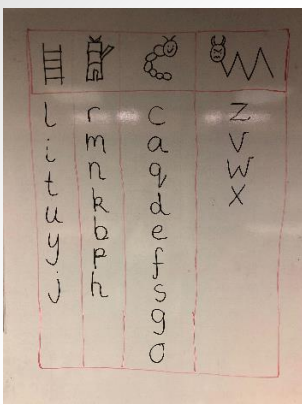 l
i
t
u
y
j
r
m
n
k
b
p
h
c
a
q
d
e
f
s
g
o
z
v
w
x